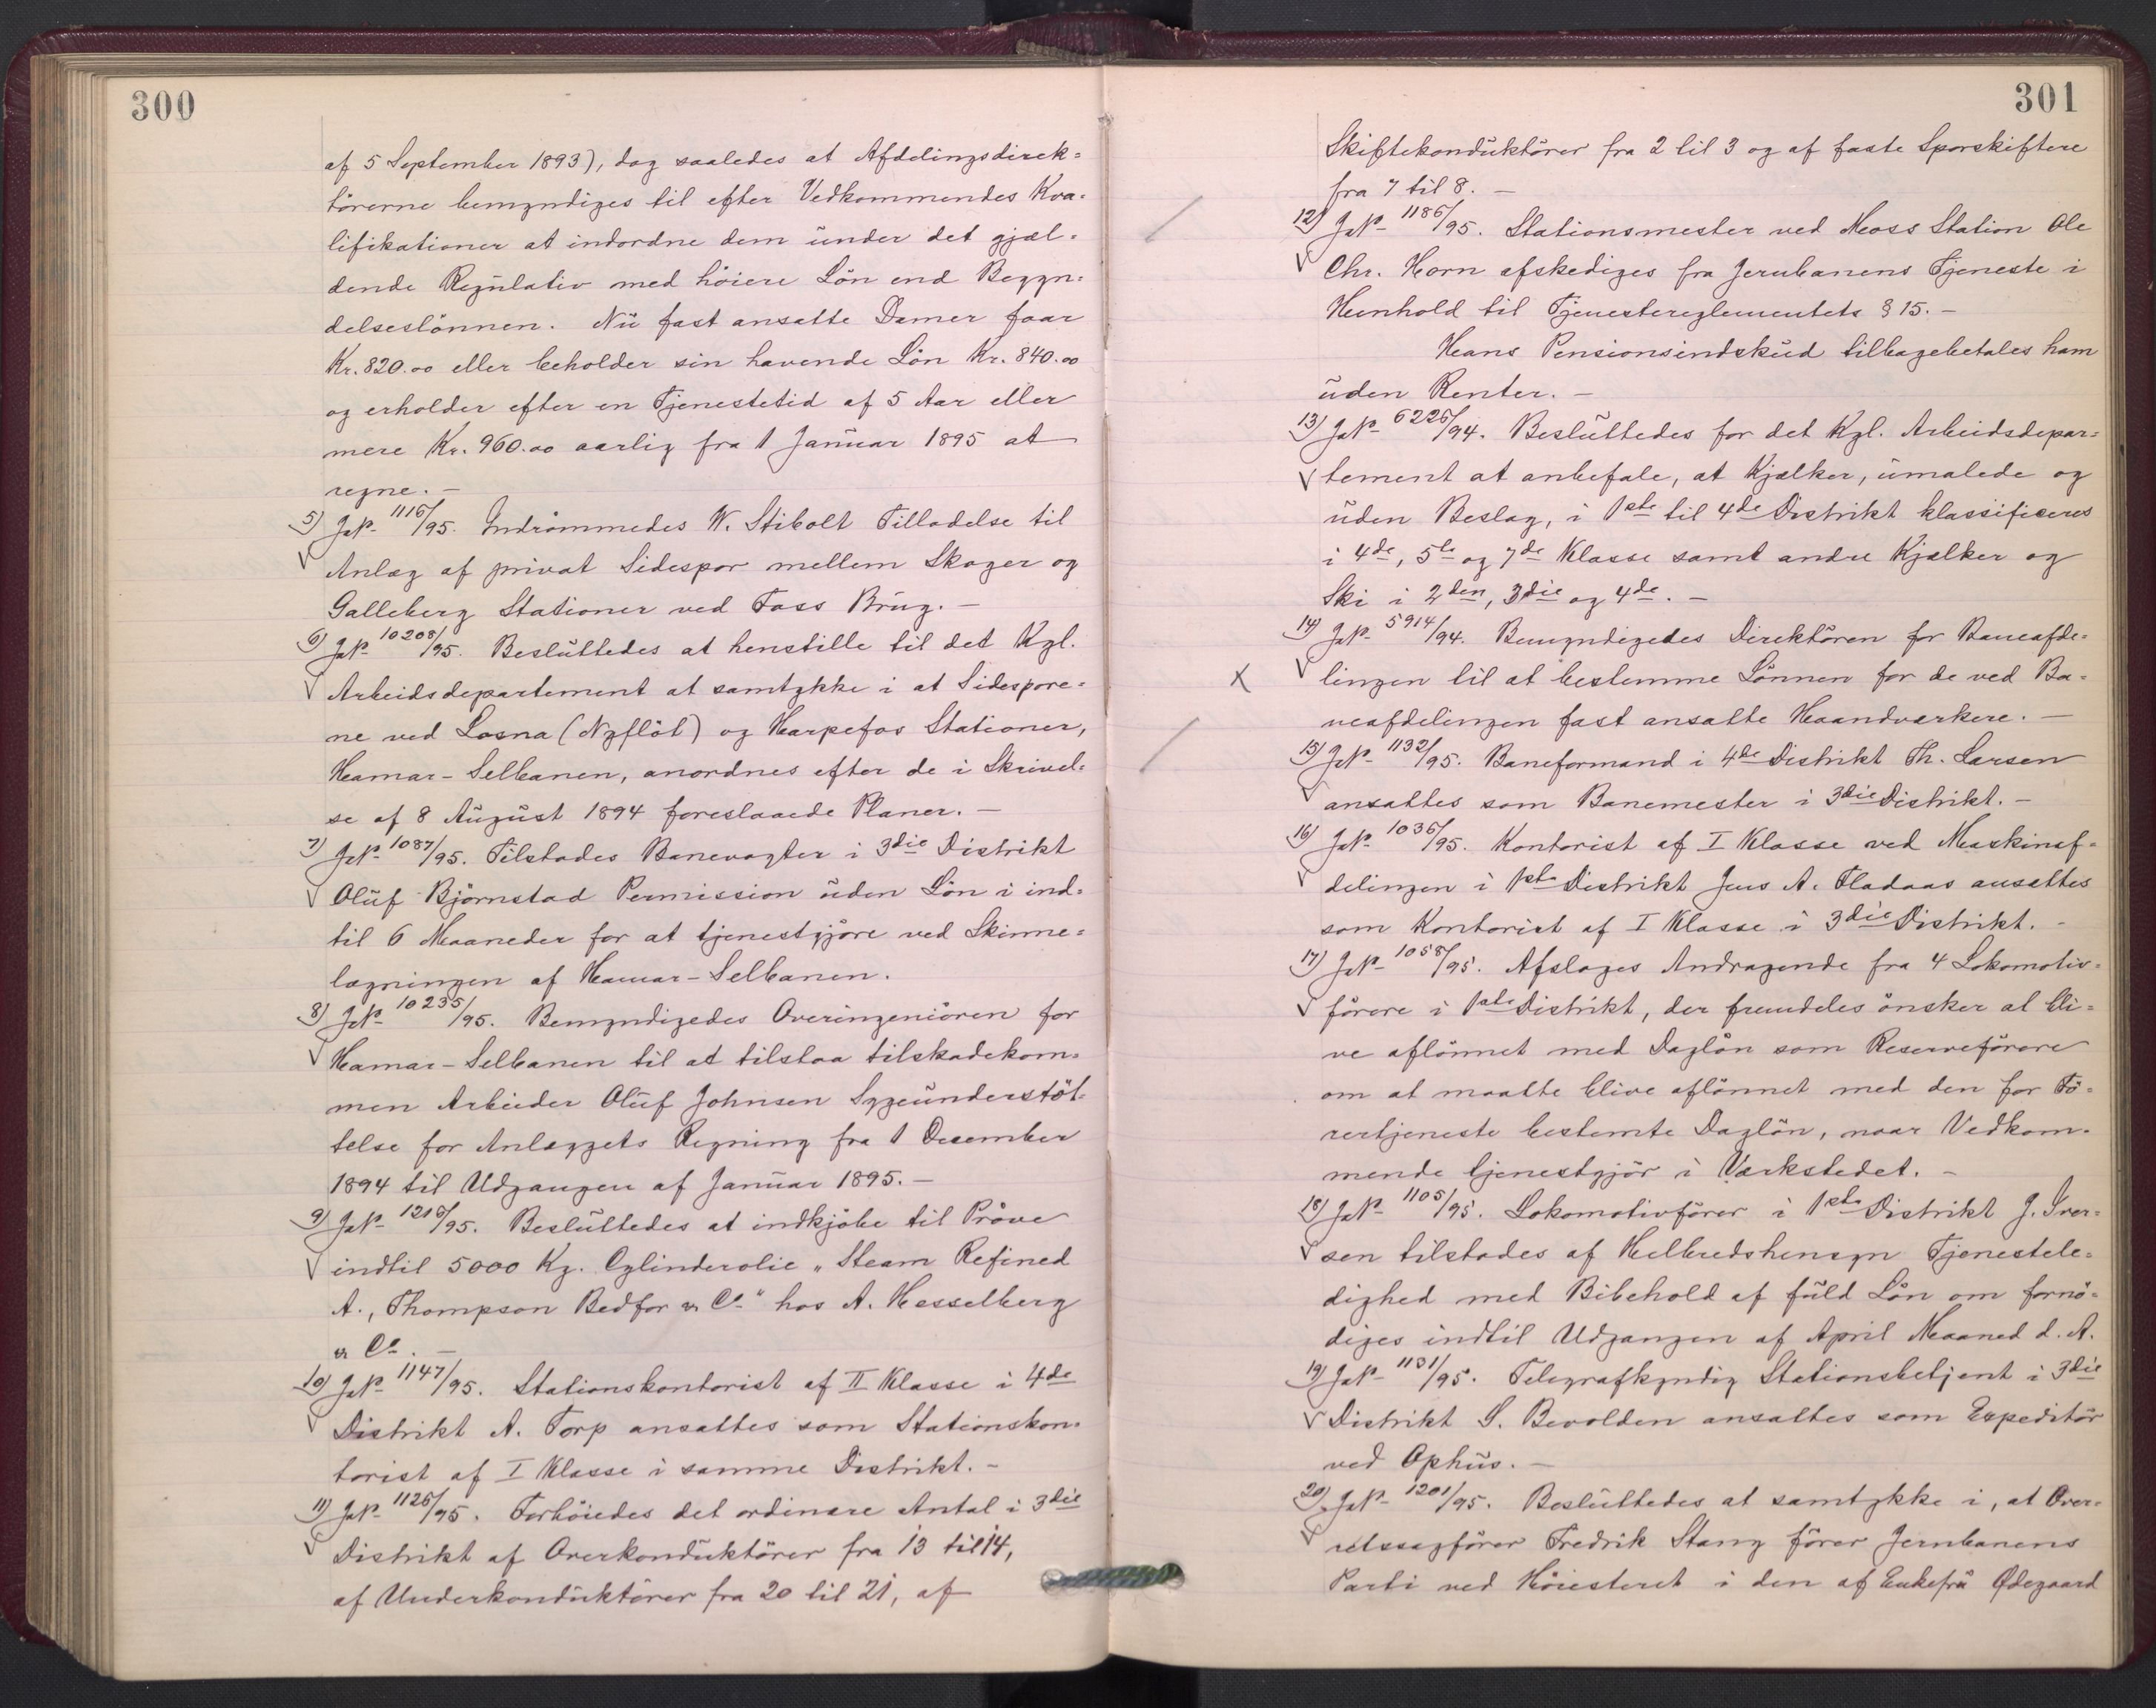 300
af 5 September 1893), dog saaledes at Afdelingsdirek-
törerne bemyndiges til efter Vedkommendes Kva-
lifikationer at indordne dem under det gjæl-
dende Regulativ med höiere Lön end Begyn-
delseslönnen. Nu fast ansatte Damer faar
Kr. 820.00 eller beholder sin havende Lön Kr. 840.00
og erholder efter en Tjenestetid af 5 Aar eller
mere Kr. 960.00 aarlig fra 1 Januar 1895 at
regne. —
5) JN- 1116/95. Indrömmedes W. Stibolt Tilladelse til
Anlæg af privat Sidespor mellem Skoger og
Galleberg Stationer ved Foss Brug. —
6) JN- 10208/95. Besluttedes at henstille til det Kgl.
Arbeidsdepartement at samtykke i at Sidespore-
ne ved Losna (Nyflöt) og Harpefos Stationer,
Hamar-Selbanen, anordnes efter de i Skrivel-
se af 8 August 1894 foreslaaede Planer. —
7) JN- 1087/95. Tilstodes Banevogter i 3die Distrikt
Oluf Björnstad Permission uden Lön i ind-
til 6 Maaneder for at tjenestgjöre ved Skinne-
lægningen af Hamar-Selbanen.
8) JN- 10235/95. Bemyndigedes Overingeniören for
Hamar-Selbanen til at tilstaa tilskadekom-
men Arbeider Oluf Johnsen Sygeunderstöt-
telse for Anlæggets Regning fra 1 December
1894 til Udgangen af Januar 1895. —
9) JN- 1216/95. Besluttedes at indkjöbe til Pröve
indtil 5000 Kg. Cylinderolie „Steam Refined
A., Thompson Bedfor & Co" hos A. Hesselberg
& Co. —
10) JN- 1147/95. Stationskontorist af II Klasse i 4de
Distrikt A. Torp ansattes som Stationskon-
torist af I Klasse i samme Distrikt. —
11) JN- 1126/95. Forhöiedes det ordinære Antal i 3die
Distrikt af Overkonduktörer fra 13 til 14,
af Underkonduktörer fra 20 til 21, af
301
Skiftekonduktörer fra 2 til 3 og af faste Sporskiftere
fra 7 til 8. —
12) JN- 1186/95. Stationsmester ved Moss Station Ole
Chr. Horn afskediges fra Jernbanens Tjeneste i
Henhold til Tjenestereglementets § 15. —
Hans Pensionsindskud tilbagebetales ham
uden Renter. —
13) JN- 6226/94. Besluttedes for det Kgl. Arbeidsdepar-
tement at anbefale, at Kjælker, umalede og
uden Beslag, i 1ste til 4de Distrikt klassificeres
i 4de, 5te og 7de Klasse samt andre Kjælker og
Ski i 2den, 3die og 4de. —
14) JN- 5914/94. Bemyndigedes Direktören for Baneafde-
lingen til at bestemme Lönnen for de ved Ba-
neafdelingen fast ansatte Haandværkere. —
15) JN- 1132/95. Baneformand i 4de Distrikt Th. Larsen
ansattes som Banemester i 3die Distrikt. —
16) JN- 1036/95. Kontorist af I Klasse ved Maskinaf-
delingen i 1ste Distrikt Jens A. Fladaas ansattes
som Kontorist af I Klasse i 3die Distrikt. —
17) JN- 1058/95. Afsloges Andragende fra 4 Lokomotiv-
förere i 1ste Distrikt, der fremdeles önsker at bli-
ve aflönnet med Daglön som Reserveförere
om at maatte blive aflönnet med den for Fö-
rertjeneste bestemte Daglön, naar Vedkom-
mende tjenestgjör i Værkstedet. —
18) JN- 1105/95. Lokomotivförer i 1ste Distrikt J. Iver-
sen tilstodes af Helbredshensyn Tjenestele-
dighed med Bibehold af fuld Lön om fornö-
diges indtil Udgangen af April Maaned d. A.
19) JN- 1131/95. Telegrafkyndig Stationsbetjent i 3die
Distrikt S. Bevolden ansattes som Expeditör
ved Ophus. —
20) JN- 1201/95. Besluttedes at samtykke i, at Over-
retssagförer Fredrik Stang förer Jernbanens
Parti ved Höiesteret i den af Enkefru Ødegaard